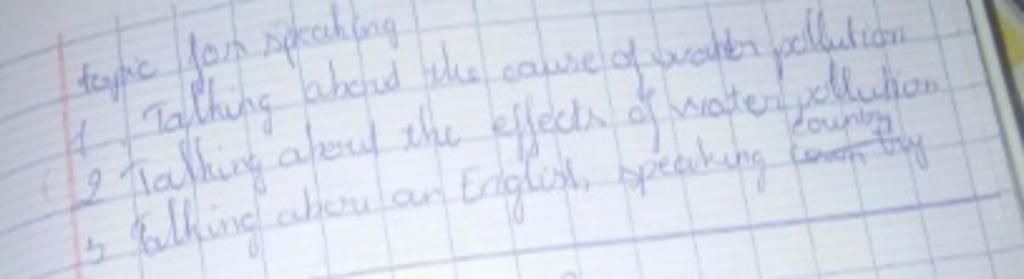 topic for speaking
1. Talking about the cause of water pollution
2 Talking about the effects of water pollution
3 Talking about an English, speaking country